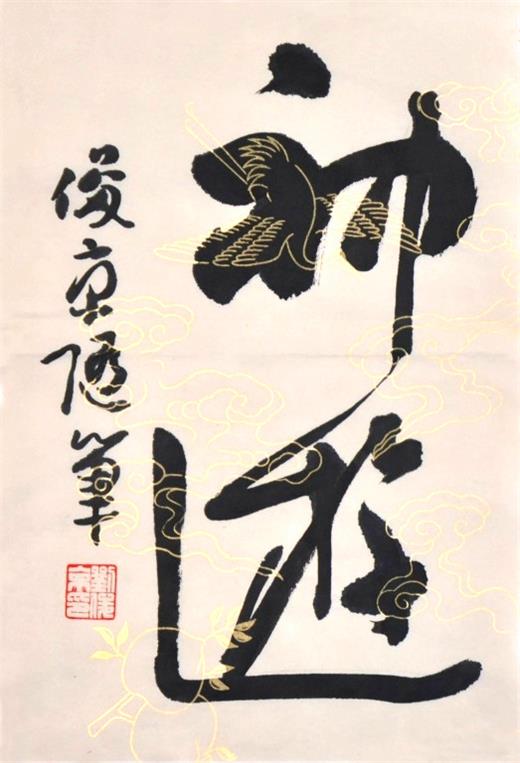 神遊
俊京隨筆
劉俊京印